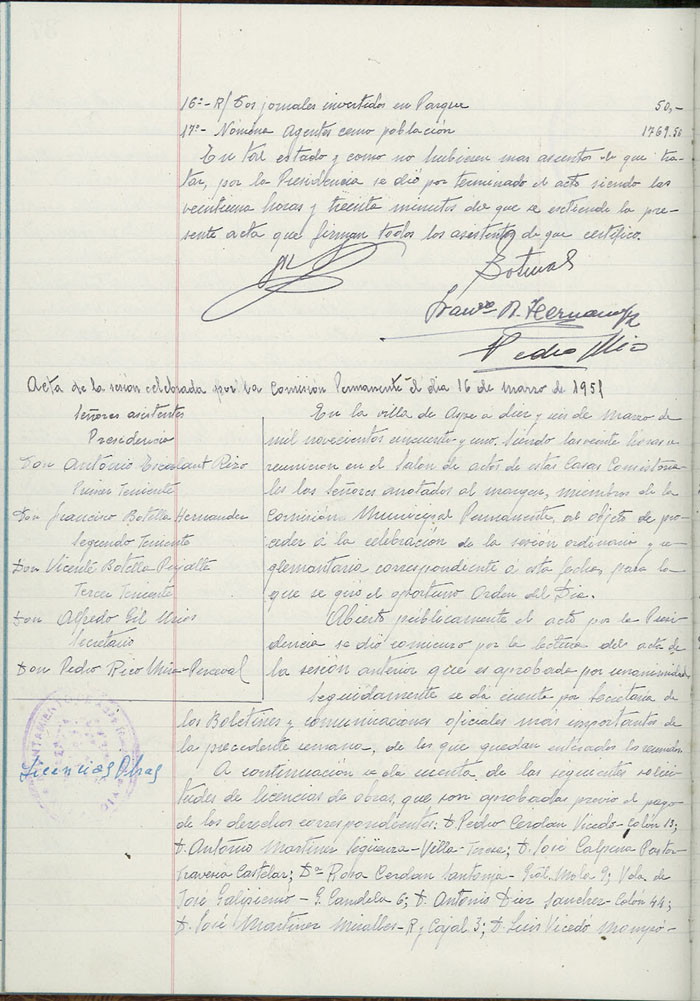 16º- R/ Dos jornales invertidos en Parque 50,-
17º- Nómina Agentes como población 1769.50
En tal estado y como no hubiesen mas asuntos de que tra-
tar, por la Presidencia se dió por terminado el acto siendo las
veintiuna horas y treinta minutos de que se extiende la pre-
sente acta que firman todos los asistentes de que certifico.
Botella
Franco B. Hernandez
Pedro Rico
Acta de la sesion celebrada por la Comisión Permanente el dia 16 de marzo de 1951
Señores asistentes
Presidencia
Don Antonio Escalant Rizo
Primer Teniente
Don Francisco Botella Hernandez
Segundo Teniente
Don Vicente Botella
Tercer Teniente
Don Alfredo Gil Mios
Secretario
Don Pedro Rico Mira-Perceval
En la villa de Aspe a diez y seis de marzo de
mil novecientos cincuenta y uno. Siendo las veinte horas se
reunieron en el Salon de actos de estas Casas Consistoria-
les los señores anotados al margen, miembros de la
Comisión Municipal Permanente, al objeto de pro-
ceder á la celebración de la sesión ordinaria y re-
glamentaria correspondiente a esta fecha, para lo
que se giró el oportuno Orden del Dia.
Abierto públicamente el acto por la Presi-
dencia se dió comienzo por la lectura del acta de
la sesión anterior que es aprobada por unanimidad.
Seguidamente se dá cuenta por Secretaria de
los Boletines y comunicaciones oficiales mas importantes de
la precedente semana, de los que quedan enterados los reunidos.
Licencias Obras
A continuación se da cuenta de las seguientes solici-
tudes de licencias de obras, que son aprobadas previo el pago
de los derechos correspondientes: D. Pedro Cerdan Vicedo- Colón 13;
D. Antonio Martinez Sigüenza- Villa-Teresa; D. José Calpena Pastor
Travesia Castelar; Dª Rosa Cerdan Santonja- Gral. Mola 9; Vda. de
José Galipienso - G. Candela 6; D. Antonio Diez Sanchez- Colón 44;
D. José Martinez Miralles- R y Cajal 3; D. Luis Vicedó Mompó-